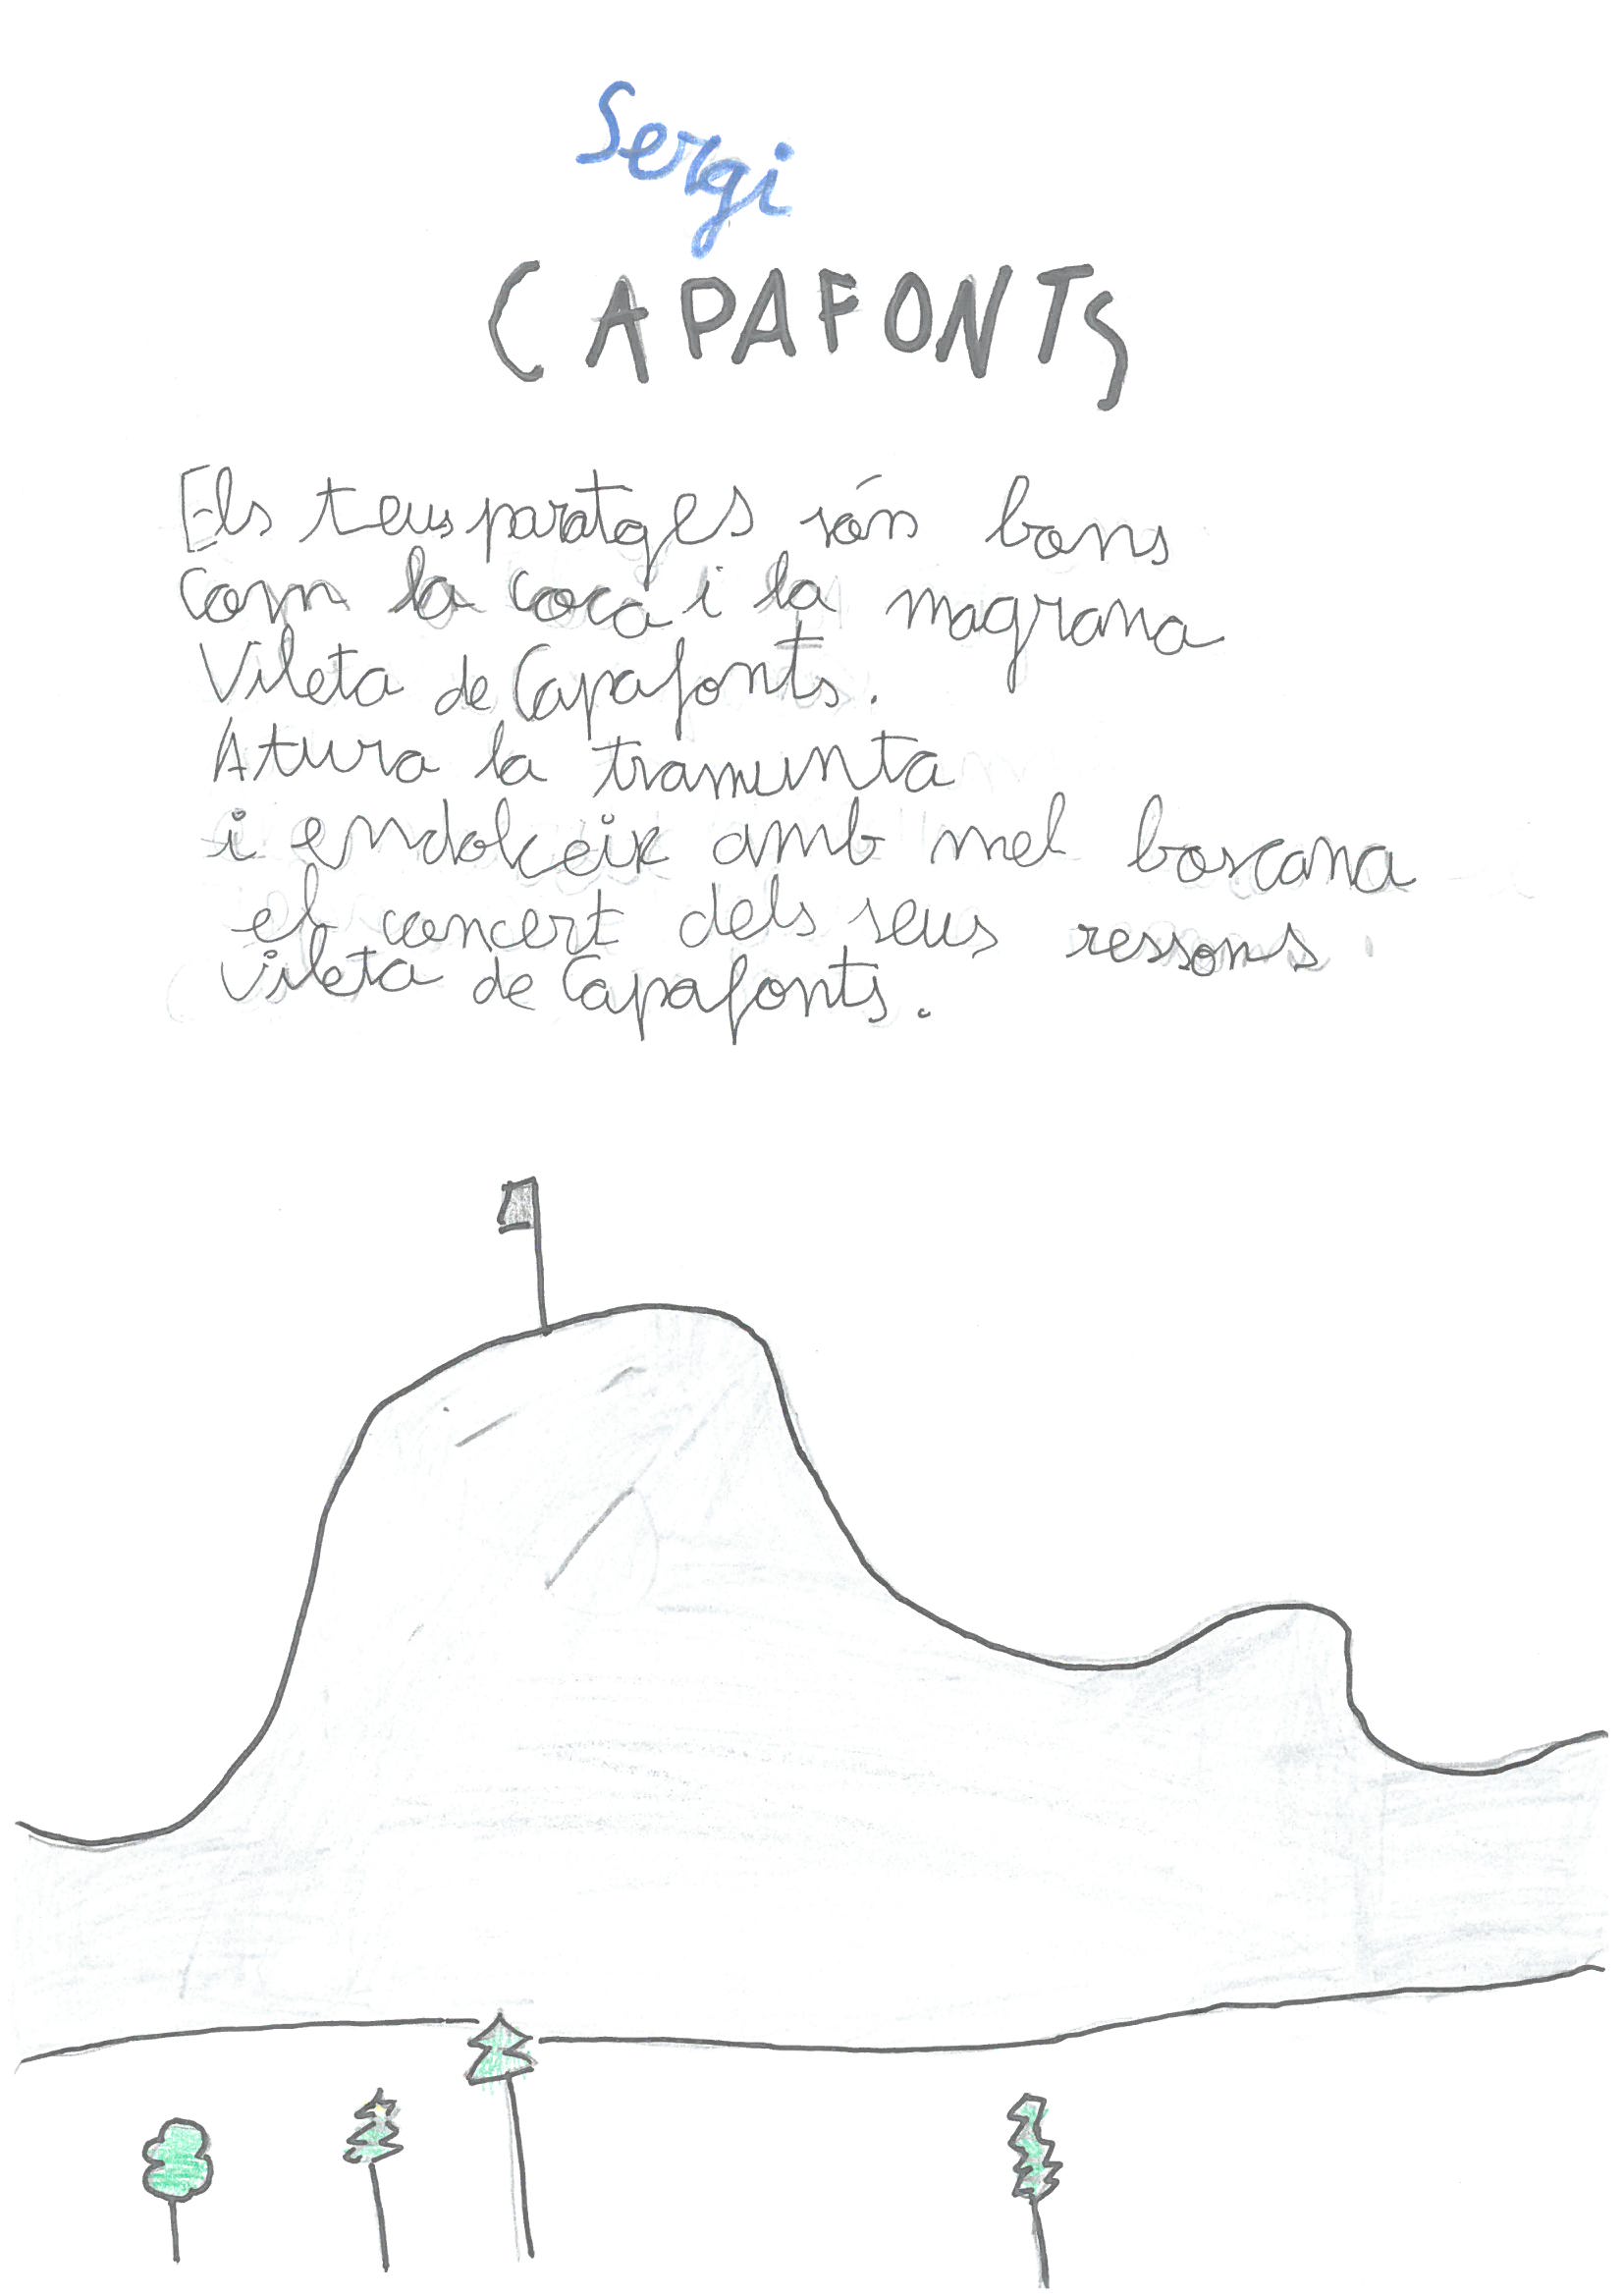 Sergi
CAPAFONTS
Els teus paratges són bons
com la coca i la magrana
Vileta de Capafonts.
Atura la tramunta
i endolceix amb mel boscana
el concert dels seus ressons.
Vileta de Capafonts.